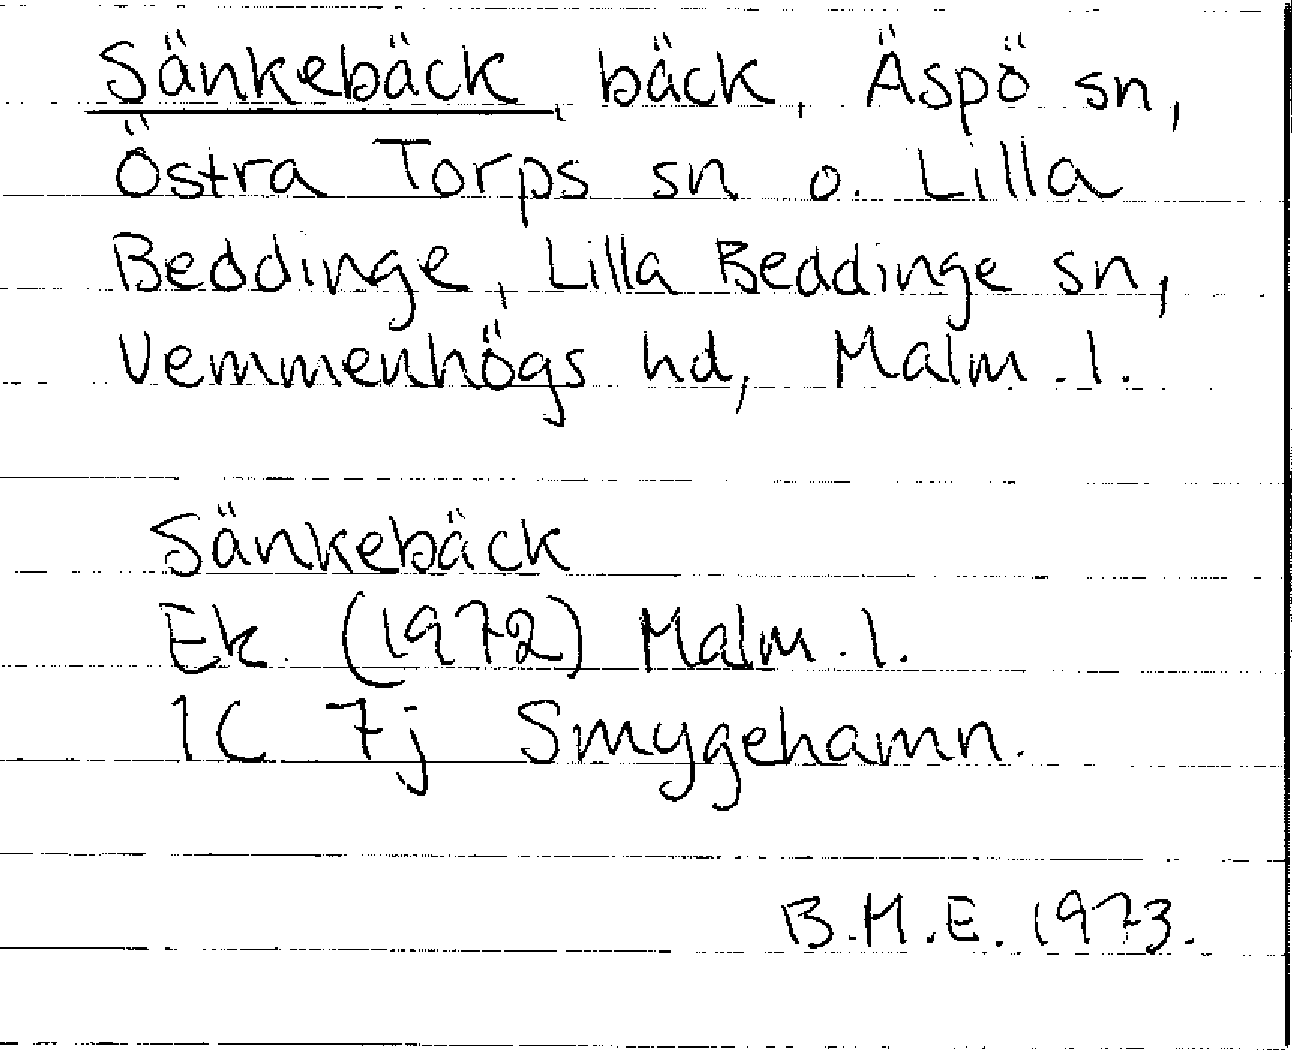 Sänkebäck, bäck, Äspö sn,
Östra Torps sn o. Lilla
Beddinge, Lilla Beddinge sn,
Vemmenhögs hd, Malm. l.
Sänkebäck
Ek. (1972) Malm. l.
1C 7j Smygehamn.
B.M.E. 1973.